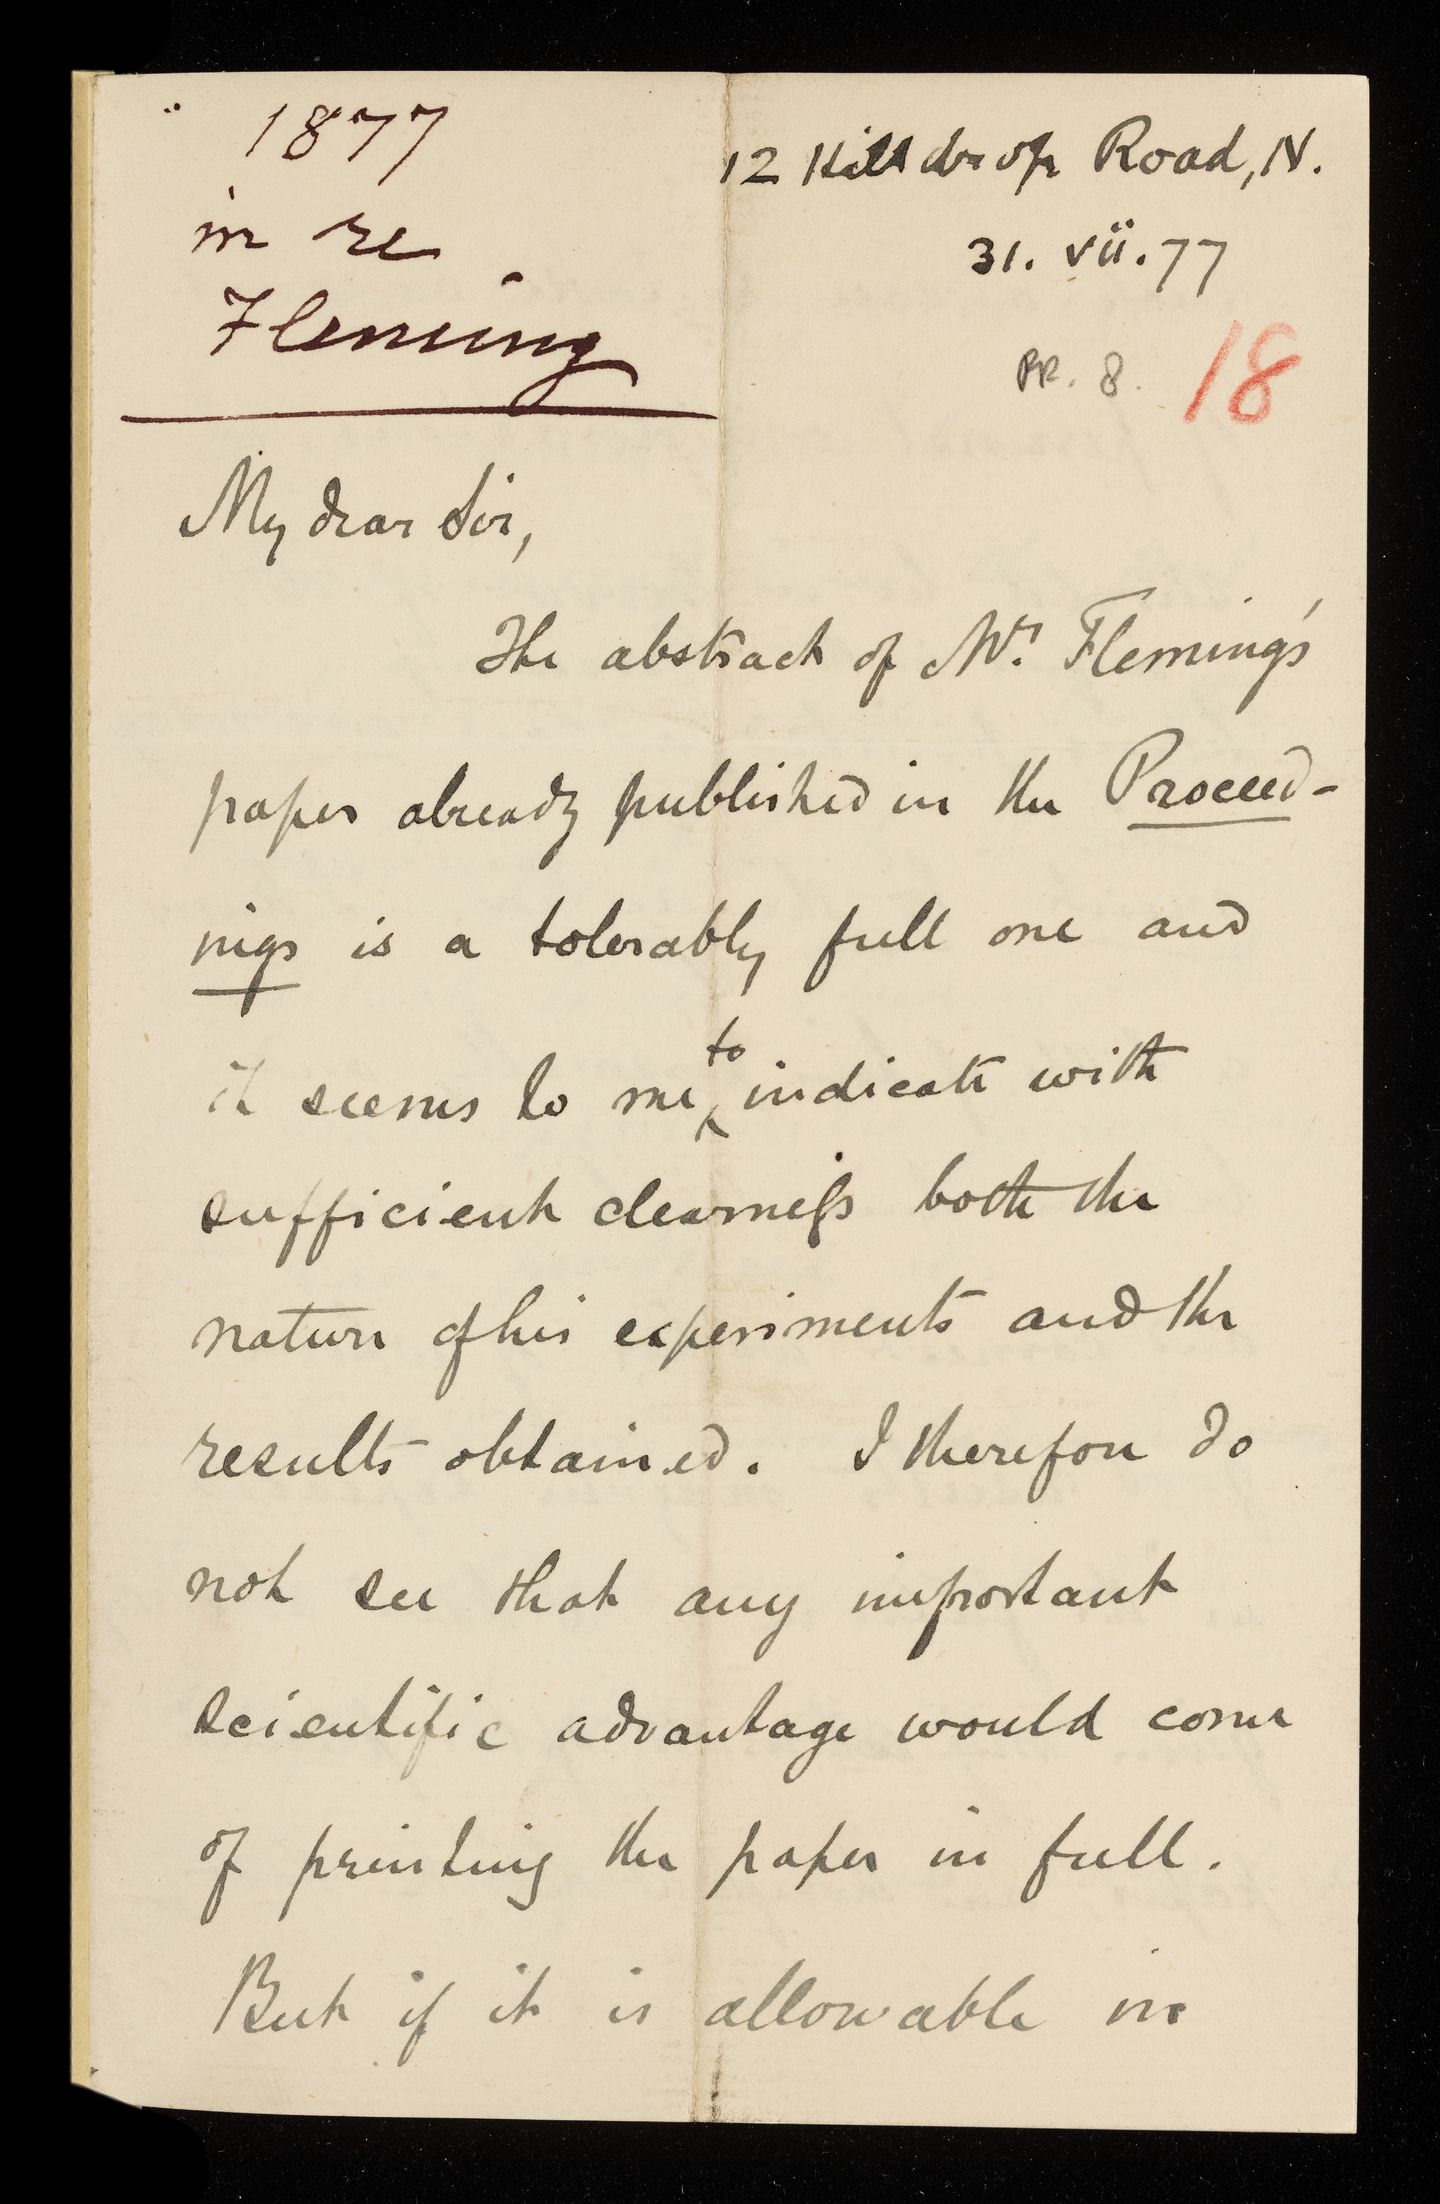 1877
in re
Fleming
12 Hilldrop Road, N.
31. vii. 77
RR. 8. 18
My dear Sir,
The abstract of Mr. Fleming's
paper already published in the Proceed-
ings is a tolerably full one and
it seems to me to indicate with
sufficient clearness both the
nature of his experiments and the
results obtained. I therefore do
not see that any important
scientific advantage would come
of printing the paper in full.
But if it is allowable in